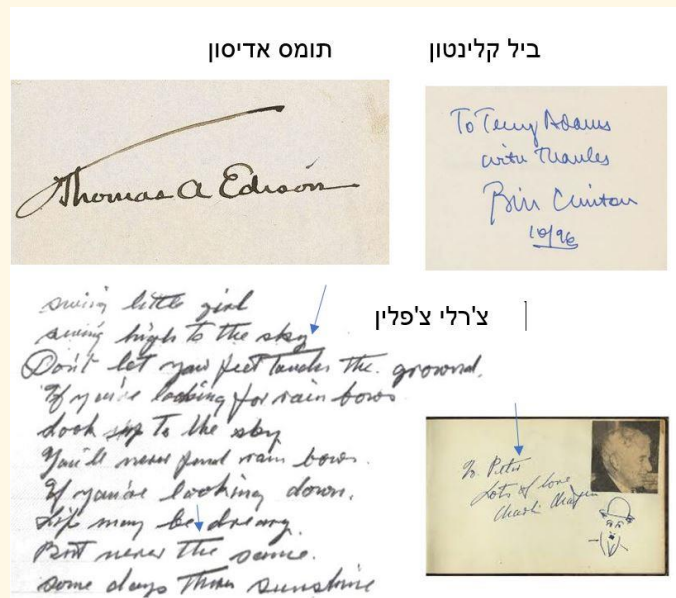 תומס אדיסון
ביל קלינטון
Thomas A Edison
To Terry Adams
with Thanks
Bill Clinton
10/96
צ'רלי צ'פלין
swing little girl
swing high to the sky
Don't let your feet touch the ground.
If you're looking for rain bows
Look up to the sky
You'll never find rain bows.
If you're looking down.
Life may be dreary
But never the same.
some days sunshine
To Peter
Lots of love
Charlie Chaplin